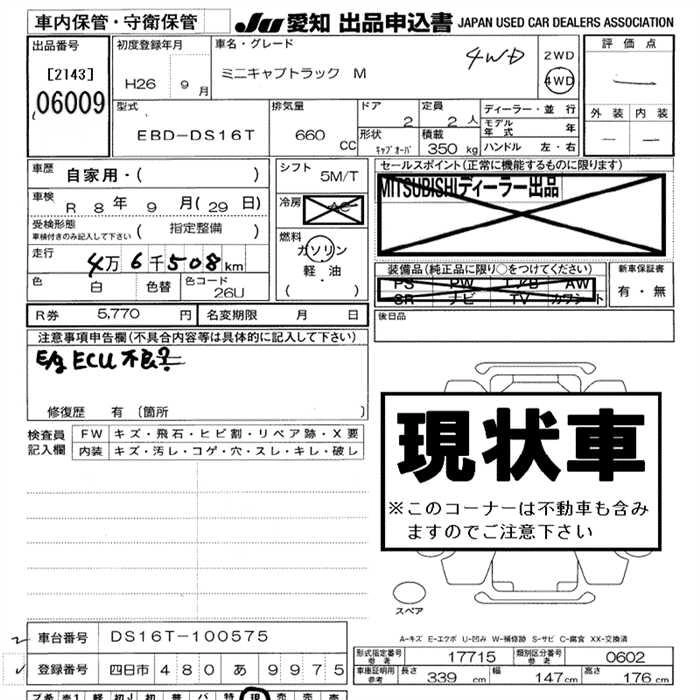 車内保管・守衛保管
JU 愛知 出品申込書 JAPAN USED CAR DEALERS ASSOCIATION
出品番号
[2143]
06009
初度登録年月
H26 9 月
車名・グレード
ミニキャブトラック M
4WD
2WD
4WD
評価点
外装 内装
型式
EBD-DS16T
排気量
660 CC
ドア
2
定員
2 人
形状
キャブオーバ
積載
350 kg
ディーラー・並 行
モデル年式 年
ハンドル 左・右
車歴 自家用・( )
車検 R 8 年 9 月 (29 日)
受検形態
車検付きのみ記入して下さい
( 指定整備 )
走行
4万6千508km
色 白 色替 色コード 26U
R券 5,770 円 名変期限 月 日
シフト
5M/T
冷房
AC
燃料
ガソリン
軽・油
( )
セールスポイント(正常に機能するものに限ります)
MITSUBISHIディーラー出品
装備品(純正品に限り○をつけてください)
PS PW エアB AW
SR ナビ TV カワシート
新車保証書
有・無
後日品
注意事項申告欄(不具合内容等は具体的に記入して下さい)
E/g ECU 不良?
修復歴 有 (箇所 )
検査員記入欄
FW キズ・飛石・ヒビ割・リペア跡・X要
内装 キズ・汚レ・コゲ・穴・スレ・キレ・破レ
現状車
※このコーナーは不動車も含み
ますのでご注意下さい
スペア
A-キズ E-エクボ U-凹み W-補修跡 S-サビ C-腐食 XX-交換済
車台番号 DS16T-100575
登録番号 四日市 480 あ 9975
形式指定番号 参考 17715 類別区分番号 参考 0602
車庫証明用 参考 長さ 339 cm 幅 147 cm 高さ 176 cm